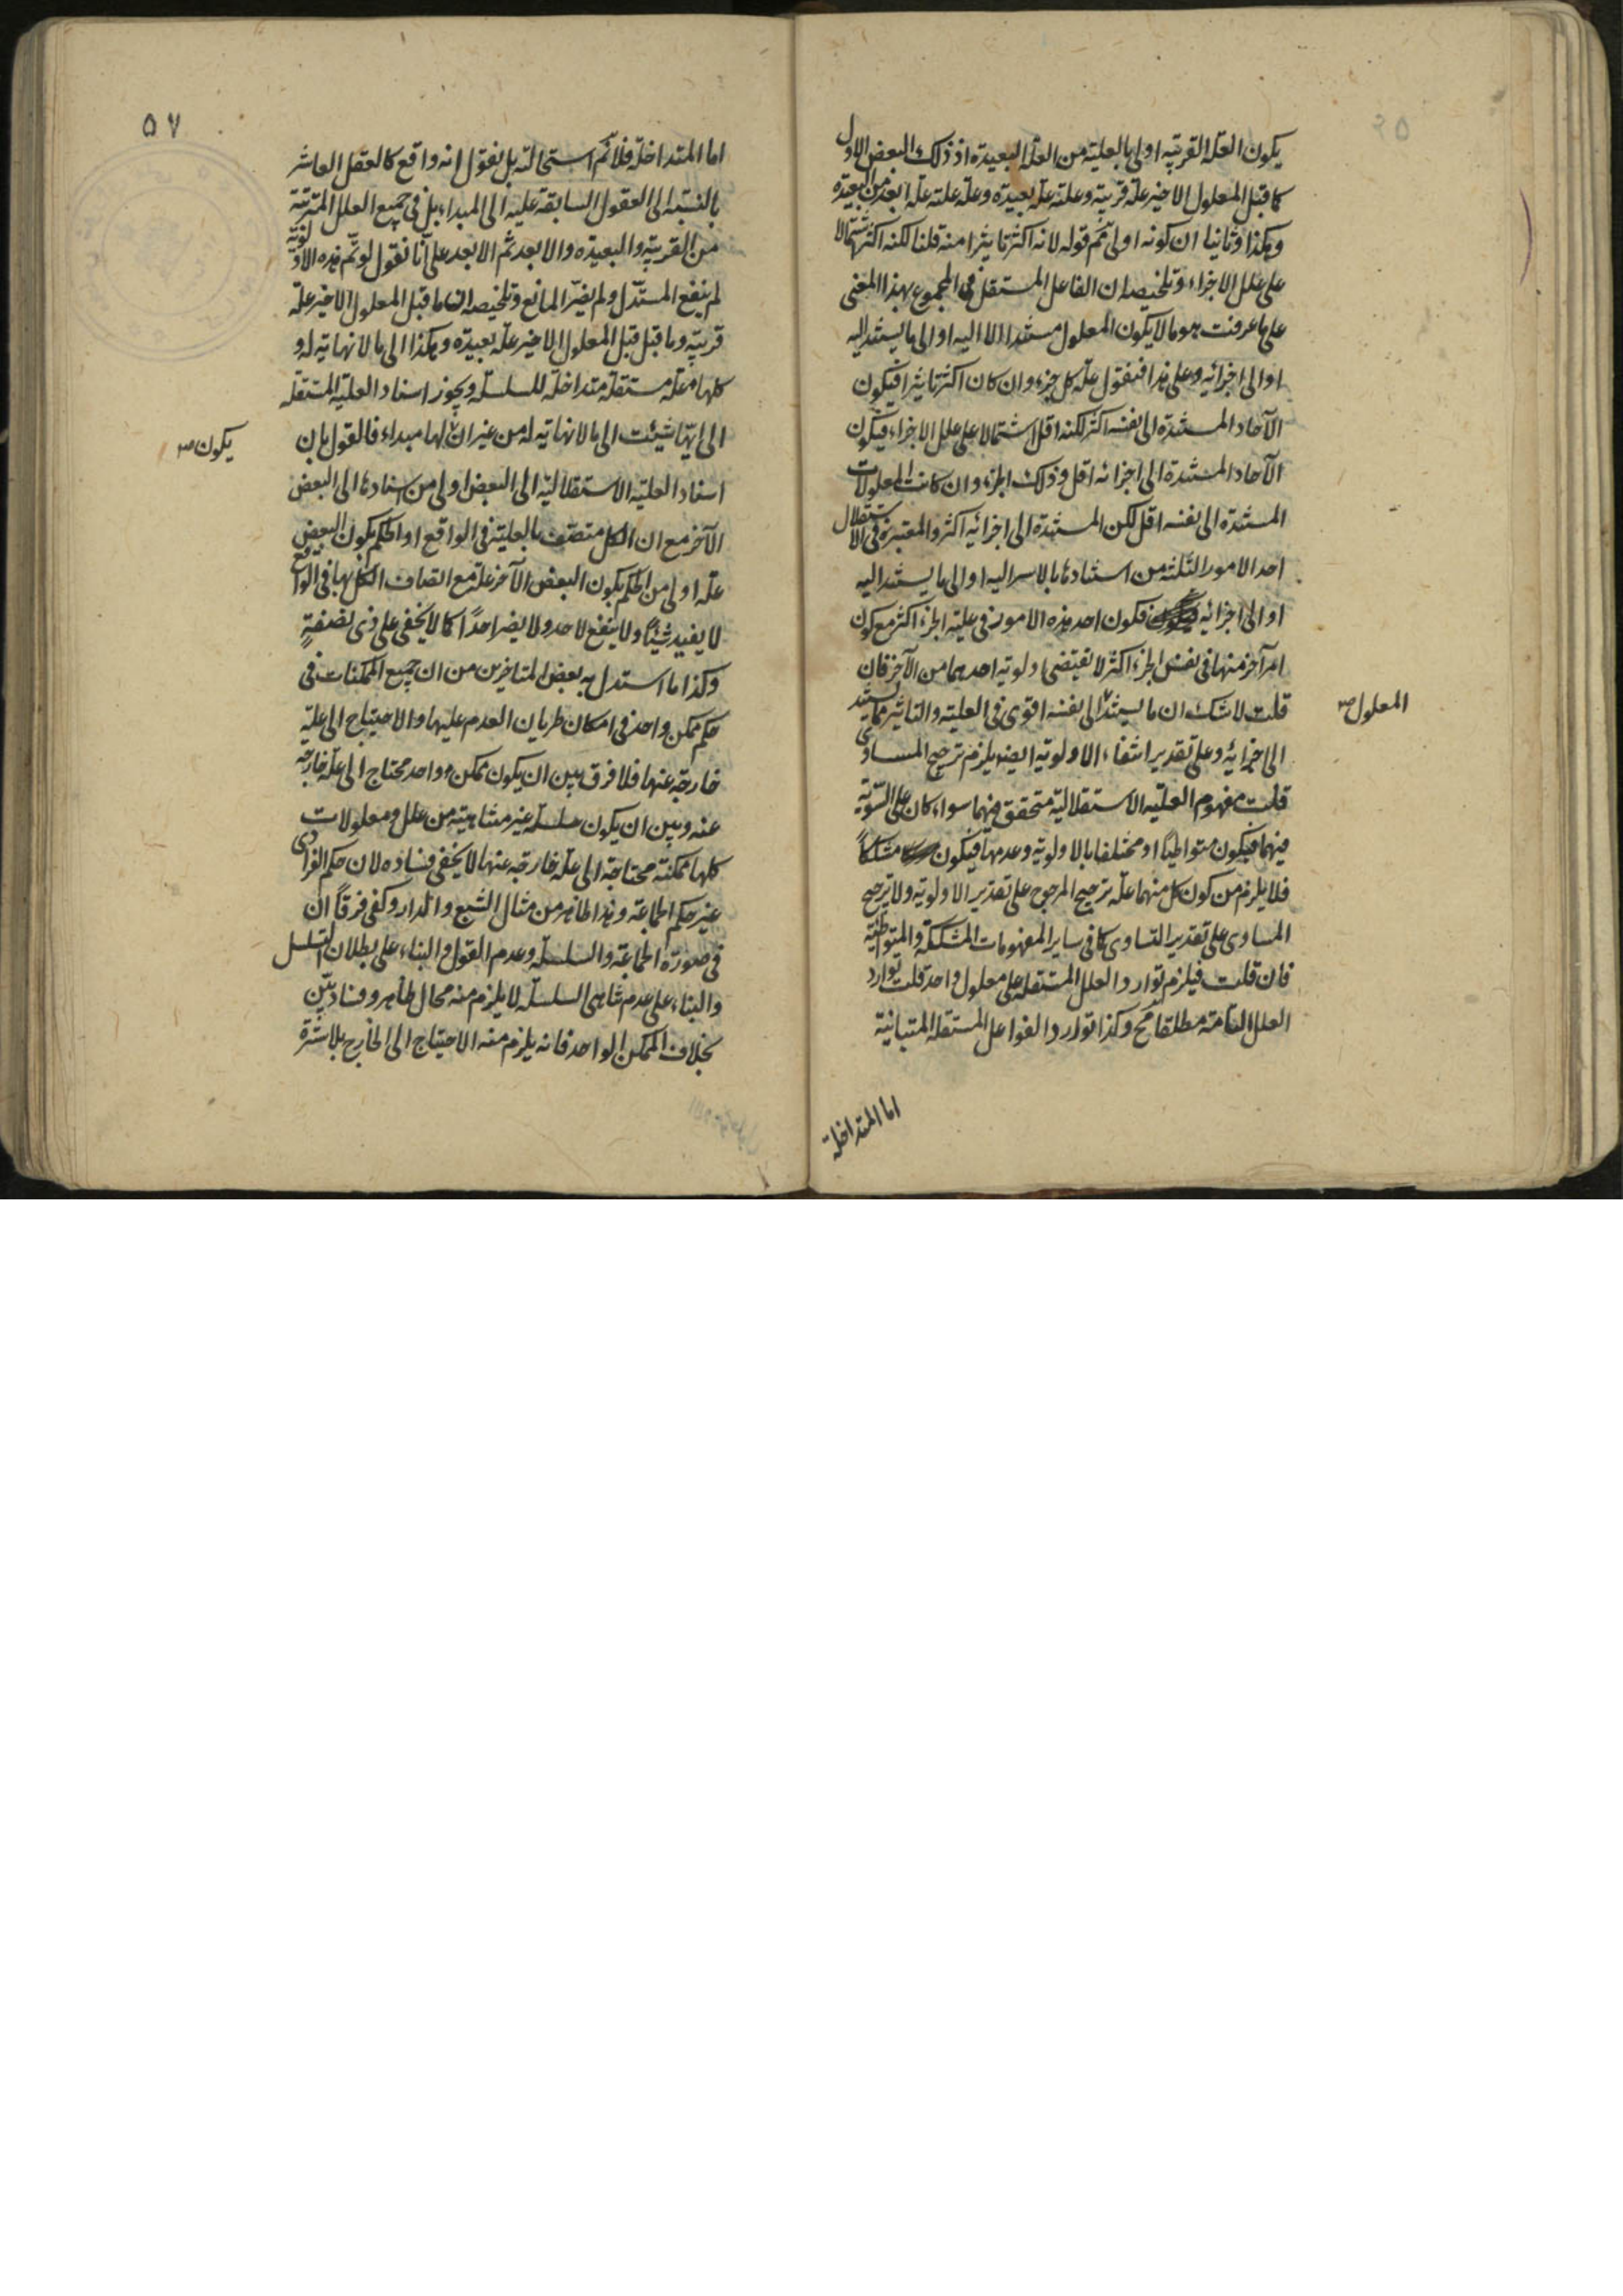 يكون العلة القريبة اولى بالعلية من العلة البعيدة اذ ذلك البعض الاول
كما قبل المعلول الاخير علة قريبة وعلته علة بعيدة وعلة علته علة ابعد من البعيدة
وهكذا وثانيا ان كونه اولى ثم قوله لانه اكثر تاثيرا منه قلنا لكنه اكثرها اشتمالا
على علل الاجزاء وتلخيصه ان الفاعل المستقل في المجموع بهذا المعنى
على ما عرفت هو ما لا يكون المعلول مستندا الا اليه او الى ما يستند اليه
او الى اجزائه وعلى هذا فنقول علة كل جزء وان كان اكثر تاثيرا فيكون
الآحاد المستندة الى نفسه اكثر لكنه اقل اشتمالا على علل الاجزاء فيكون
الآحاد المستندة الى اجزائه اقل وذلك الجزء وان كانت المعلولات
المستندة الى نفسه اقل لكن المستندة الى اجزائه اكثر والمعتبر في الاستقلال
احد الامور الثلثة من استنادها بالاسر اليه او الى ما يستند اليه
او الى اجزائه فكون احد هذه الامور في علية الجزء اكثر مع كون
امر آخر منها في نفس الجزء اكثر لا تقتضى اولوية احدهما من الآخر فان
قلت لا شك ان ما يستند الى نفسه اقوى في العلية والتاثير مما يستند
المعلول صح
الى اجزائه وعلى تقدير انتفاء الاولوية ايضا يلزم ترجيح المساوى
قلت مفهوم العلية الاستقلالية متحقق فيهما سواء كان على السوية
فيهما فيكون متواطيا او مختلفا بالاولوية وعدمها فيكون مشككا
فلا يلزم من كون كل منهما علة ترجيح المرجوح على تقدير الاولوية ولا ترجيح
المساوى على تقدير التساوى كما في ساير المفهومات المشككة والمتواطئة
فان قلت فيلزم توارد العلل المستقلة على معلول واحد قلت توارد
العلل التامة مطلقا مح وكذا توارد الفواعل المستقلة المتباينة
اما المتداخلة
٥٧
اما المتداخلة فلانم استحالته بل نقول انه واقع كالعقل العاشر
بالنسبة الى العقول السابقة عليه الى المبداء بل في جميع العلل المترتبة
من القريبة والبعيدة والابعد ثم الابعد على انا نقول لو تم هذه الاولوية
لم ينفع المستدل ولم يضر المانع وتلخيصه ان ما قبل المعلول الاخير علة
قريبة وما قبل قبل المعلول الاخير علة بعيدة وهكذا الى ما لا نهاية له و
كلها علة مستقلة متداخلة للسلسلة ويجوز اسناد العلية المستقلة
الى ايتها شيئت الى ما لا نهاية له من غير ان لها مبداء فالقول بان
يكون صح
اسناد العلية الاستقلالية الى البعض اولى من اسنادها الى البعض
الآخر مع ان الكل متصف بالعلية في الواقع او الحكم بكون البعض
علة اولى من الحكم بكون البعض الآخر علة مع اتصاف الكل بها في الواقع
لا يفيد شيئا ولا ينفع لاحد ولا يضر احدا كما لا يخفى على ذى نصفة
وكذا ما استدل به بعض المتاخرين من ان جميع الممكنات في
حكم ممكن واحد في امكان طريان العدم عليها والاحتياج الى علة
خارجة عنها فلا فرق بين ان يكون ممكن واحد محتاج الى علة خارجة
عنه وبين ان يكون سلسلة غير متناهية من علل ومعلولات
كلها ممكنة محتاجة الى علة خارجة عنها لا يخفى فساده لان حكم الفرادى
غير حكم الجماعة وهذا ظاهر من مثال الشبع والدار وكفى فرقا ان
في صورة الجماعة والسلسلة وعدم القول والبناء على بطلان التسلسل
والبناء على عدم تناهى السلسلة لا يلزم منه محال ظاهر وفساد بين
بخلاف الممكن الواحد فانه يلزم منه الاحتياج الى الخارج بلا سترة